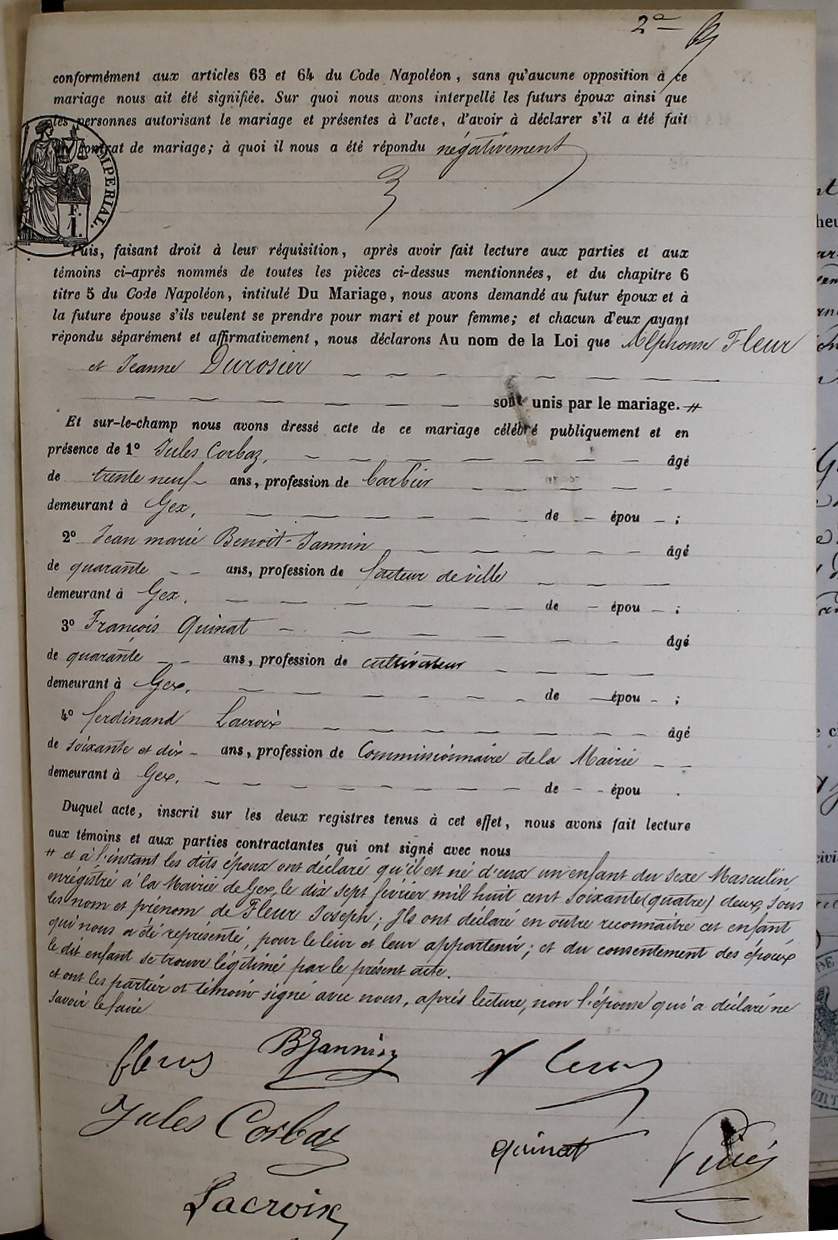 2e
conformément aux articles 63 et 64 du Code Napoléon, sans qu'aucune opposition à ce
mariage nous ait été signifiée. Sur quoi nous avons interpellé les futurs époux ainsi que
les personnes autorisant le mariage et présentes à l'acte, d'avoir à déclarer s'il a été fait
contrat de mariage; à quoi il nous a été répondu négativement
IMPERIAL.
F.
1.
Puis, faisant droit à leur réquisition, après avoir fait lecture aux parties et aux
témoins ci-après nommés de toutes les pièces ci-dessus mentionnées, et du chapitre 6
titre 5 du Code Napoléon, intitulé Du Mariage, nous avons demandé au futur époux et à
la future épouse s'ils veulent se prendre pour mari et pour femme; et chacun d'eux ayant
répondu séparément et affirmativement, nous déclarons Au nom de la Loi que Alphonse Fleur
et Jeanne Durosier
sont unis par le mariage. #
Et sur-le-champ nous avons dressé acte de ce mariage célébré publiquement et en
présence de 1° Jules Corbaz, âgé
de trente neuf ans, profession de barbier
demeurant à Gex, de — épou — ;
2° Jean marie Benoit-Jannin âgé
de quarante ans, profession de facteur de ville
demeurant à Gex. de — épou — ;
3° François Quinat âgé
de quarante ans, profession de cultivateur
demeurant à Gex. de épou — ;
4° ferdinand Lacroix âgé
de soixante et dix ans, profession de Commissionnaire de la Mairie
demeurant à Gex, de — épou .
Duquel acte, inscrit sur les deux registres tenus à cet effet, nous avons fait lecture
aux témoins et aux parties contractantes qui ont signé avec nous
# et à l'instant les dits époux ont déclaré qu'il est né d'eux un enfant du sexe Masculin
enrégistré à la Mairie de Gex, le dix sept février mil huit cent soixante (quatre) deux, sous
les nom et prénom de Fleur Joseph; Ils ont déclaré en outre reconnaître cet enfant
qui nous a été représenté, pour le leur et leur appartenir; et du consentement des époux
le dit enfant se trouve légitimé par le présent acte.
et ont les parties et témoins signé avec nous, après lecture, non l'épouse qui a déclaré ne
savoir le faire
BJannin
Jules Corbaz
quinat
Lacroix